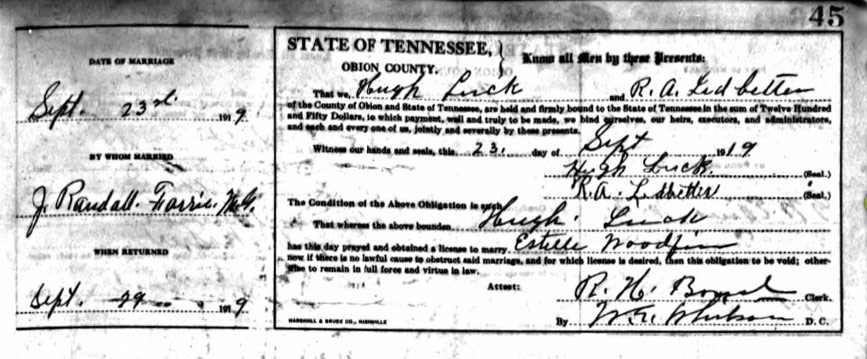 45
DATE OF MARRIAGE
Sept. 23rd. 1919
BY WHOM MARRIED
J. Randall Farris. M.G.
WHEN RETURNED
Sept. 29 1919
STATE OF TENNESSEE,
OBION COUNTY.
Know all Men by these Presents:
That we, Hugh Luck and R. A. Ledbetter
of the County of Obion and State of Tennessee, are held and firmly bound to the State of Tennessee in the sum of Twelve Hundred
and Fifty Dollars, to which payment, well and truly to be made, we bind ourselves, our heirs, executors, and administrators,
and each and every one of us, jointly and severally by these presents.
Witness our hands and seals, this 23. day of Sept 1919
Hugh Luck. (Seal.)
R.A. Ledbetter (Seal.)
The Condition of the Above Obligation is such
That whereas the above bounden Hugh Luck
has this day prayed and obtained a license to marry Estelle Woodfin
now if there is no lawful cause to obstruct said marriage, and for which license is desired, then this obligation to be void; other-
wise to remain in full force and virtue in law.
Attest: R. H. Bond Clerk.
MARSHALL & BRUCE CO., NASHVILLE
By D. C.